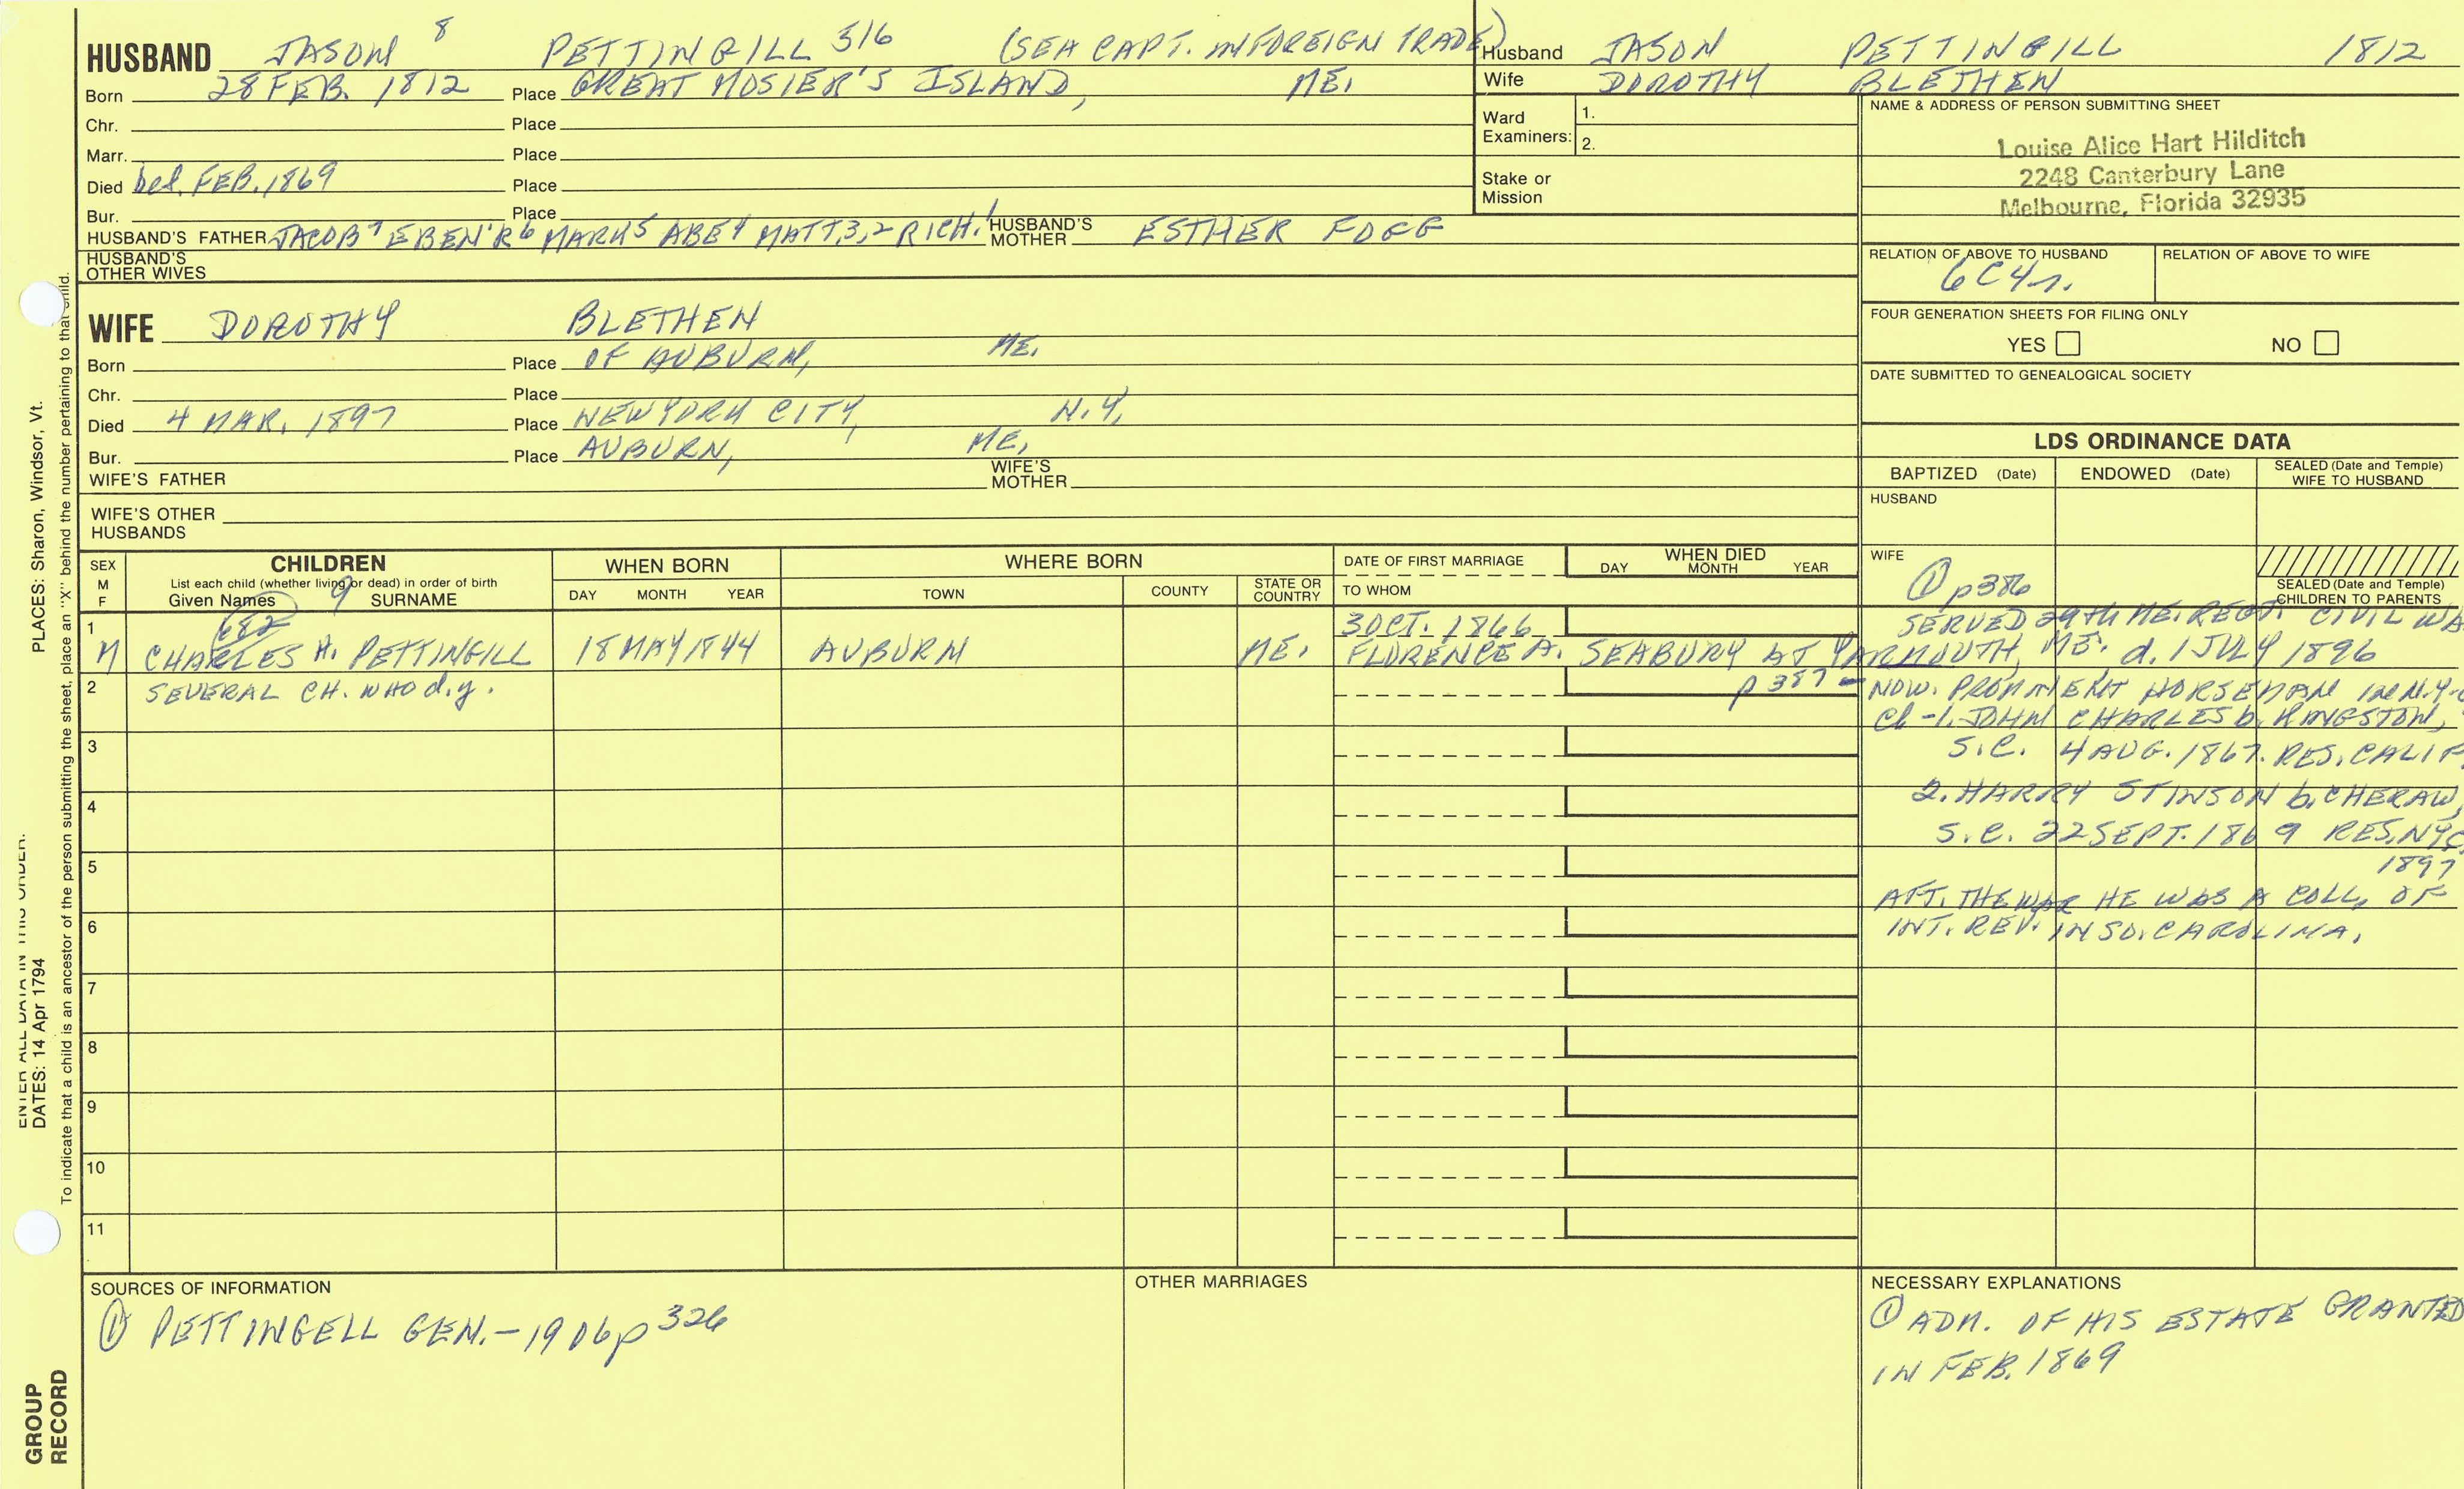 HUSBAND JASON 8 PETTINGILL 316 (SEA CAPT. IN FOREIGN TRADE)
Born 28 FEB. 1812 Place GREAT MOSIER'S ISLAND, ME.
Chr. Place
Marr. Place
Died bef. FEB. 1869 Place
Bur. Place
HUSBAND'S FATHER JACOB7 EBEN'R6 MARK5 ABE4 MATT.3,2 RICH.1 HUSBAND'S MOTHER ESTHER FOGG
HUSBAND'S OTHER WIVES
Husband JASON PETTINGILL 1812
Wife DOROTHY BLETHEN
Ward Examiners: 1.
2.
Stake or Mission
NAME & ADDRESS OF PERSON SUBMITTING SHEET
Louise Alice Hart Hilditch
2248 Canterbury Lane
Melbourne, Florida 32935
RELATION OF ABOVE TO HUSBAND RELATION OF ABOVE TO WIFE
6C4r.
FOUR GENERATION SHEETS FOR FILING ONLY
YES NO
DATE SUBMITTED TO GENEALOGICAL SOCIETY
WIFE DOROTHY BLETHEN
Born Place OF AUBURN, ME.
Chr. Place
Died 4 MAR. 1897 Place NEW YORK CITY, N.Y.
Bur. Place AUBURN, ME.
WIFE'S FATHER WIFE'S MOTHER
WIFE'S OTHER HUSBANDS
LDS ORDINANCE DATA
BAPTIZED (Date) ENDOWED (Date) SEALED (Date and Temple) WIFE TO HUSBAND
HUSBAND
WIFE
① p386
SEALED (Date and Temple) CHILDREN TO PARENTS
SEX M F
CHILDREN
List each child (whether living or dead) in order of birth
Given Names 9 SURNAME
WHEN BORN
DAY MONTH YEAR
WHERE BORN
TOWN COUNTY STATE OR COUNTRY
DATE OF FIRST MARRIAGE
TO WHOM
WHEN DIED
DAY MONTH YEAR
1 682 3 OCT. 1866 SERVED 29th ME. REGT. CIVIL WA
M CHARLES H. PETTINGILL 18 MAY 1844 AUBURN ME. FLORENCE A. SEABURY AT YARMOUTH, ME. d. 1 JULY 1896
2 SEVERAL CH. WHO d.y. p 387 - NOW. PROMINENT HORSEMAN IN N.Y.C
Ch -1. JOHN CHARLES b. KINGSTON,
3 S.C. 4 AUG. 1867. RES. CALIF.
4 2. HARRY STINSON b. CHERAW,
S.C. 22 SEPT. 1869 RES. NYC
5 1897
AFT. THE WAR HE WAS A COLL. OF
6 INT. REV. IN SO. CAROLINA.
7
8
9
10
11
SOURCES OF INFORMATION
① PETTINGELL GEN. - 1906 p 326
OTHER MARRIAGES
NECESSARY EXPLANATIONS
① ADM. OF HIS ESTATE GRANTED
IN FEB. 1869
PLACES: Sharon, Windsor, Vt.
ENTER ALL DATA IN THIS ORDER:
DATES: 14 Apr 1794
To indicate that a child is an ancestor of the person submitting the sheet, place an "X" behind the number pertaining to that child.
GROUP RECORD